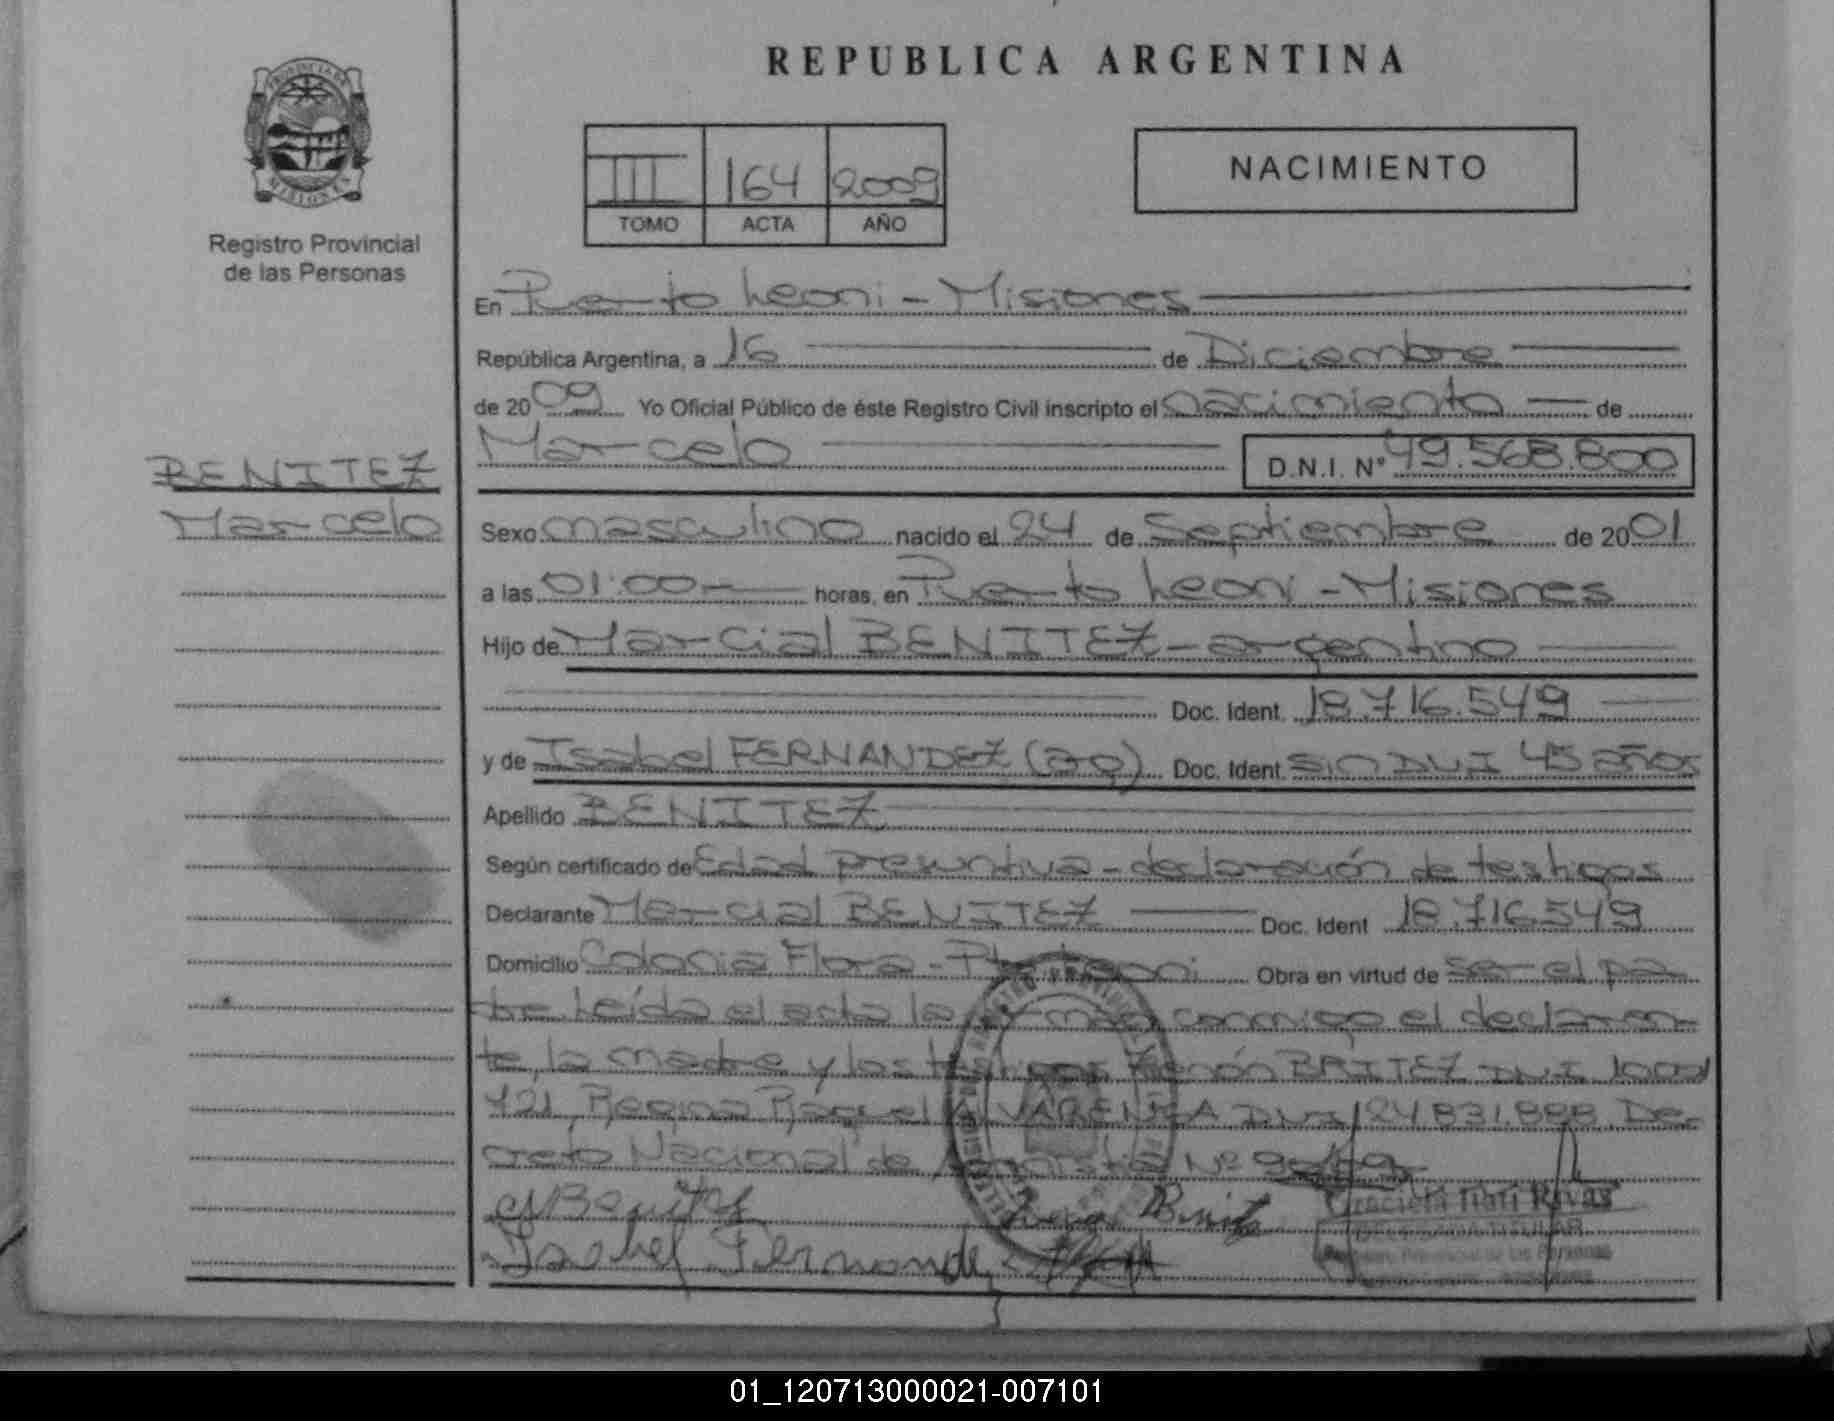 REPUBLICA ARGENTINA
PROVINCIA DE
MISIONES
Registro Provincial
de las Personas
III 164 2009
TOMO ACTA AÑO
NACIMIENTO
En Puerto Leoni - Misiones
República Argentina, a 16 de Diciembre
de 2009 Yo Oficial Público de éste Registro Civil inscripto el nacimiento de
Marcelo D.N.I. Nº 49.568.800
BENITEZ
Marcelo
Sexo masculino nacido el 24 de Septiembre de 2001
a las 01:00 horas, en Puerto Leoni - Misiones
Hijo de Marcial BENITEZ - argentino
Doc. Ident. 18.716.549
y de Isabel FERNANDEZ Doc. Ident. sin DNI 45 años
Apellido BENITEZ
Según certificado de Edad presuntiva - declaración de testigos
Declarante Marcial BENITEZ Doc. Ident 18.716.549
Domicilio Colonia Flora - Pto Leoni Obra en virtud de ser el pa
dre. Leída el acta la conmigo el declaran
te, la madre y los testigos BRITEZ DNI
421, Regina Raquel ALVARENGA DNI 24.831.888. De
creto Nacional de Amnistía Nº
Benitez
Benitez
Isabel Fernande
Graciela Rivas
DELEGADA TITULAR
Registro Provincial de las Personas
01_120713000021-007101